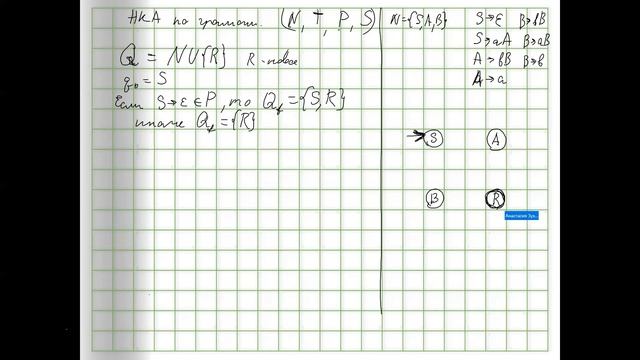 НКА по граммат. (N, T, P, S)
Q = N∪{R} R - новое
q₀ = S
Если S→ε ∈ P, то Q_f = {S,R}
иначе Q_f = {R}
N={S,A,B} S→ε B→bB
S→aA B→aB
A→bB B→b
A→a
S A
B R
Анастасия Зух...